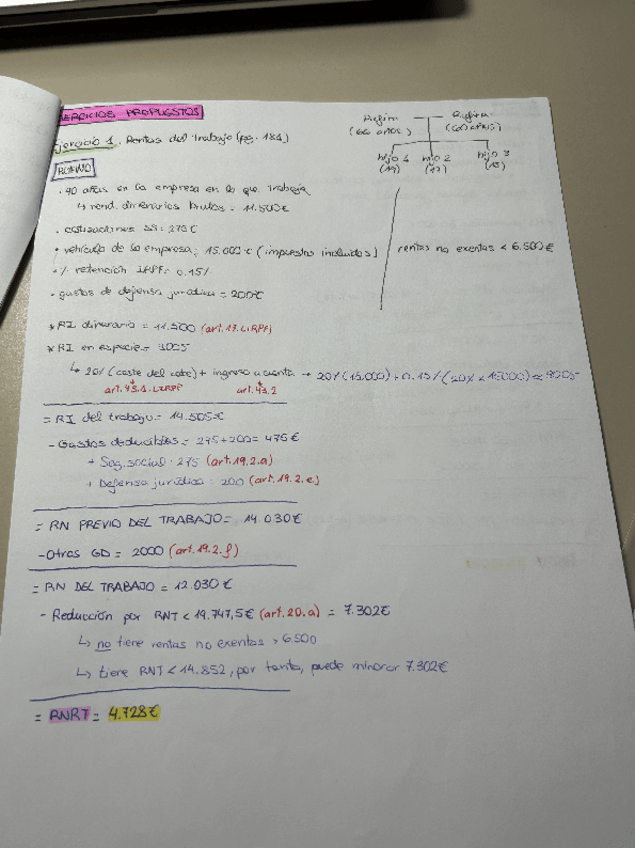 EJERCICIOS PROPUESTOS
Ejercicio 1. Rentas del trabajo (pg. 181)
Rufina
(60 años)
(66 años)
hijo 1 hijo 2 hijo 3
(17)
RUFINO
· 40 años en la empresa en la que trabaja
↳ rend. dinerarios brutos = 11.500€
· cotizaciones SS: 275€
· vehículo de la empresa: 15.000€ (impuestos incluidos)
rentas no exentas < 6.500€
· % retención IRPF: 0.15%
· gastos de defensa jurídica = 200€
* RI dinerario = 11.500 (art. 17. LIRPF)
* RI en especie = 3005
↳ 20% (coste del coche) + ingreso a cuenta → 20% (15.000) + 0.15% (20% x 15000) ≈ 3005
art. 43.1. LIRPF art. 43.2
= RI del trabajo = 14.505€
- Gastos deducibles = 275+200= 475€
+ Seg. social: 275 (art. 19.2.a)
+ Defensa jurídica: 200 (art. 19.2.e)
= RN PREVIO DEL TRABAJO = 14.030€
- Otros GD = 2000 (art. 19.2.f)
= RN DEL TRABAJO = 12.030€
- Reducción por RNT < 19.747,5€ (art. 20.a) = 7.302€
↳ no tiene rentas no exentas > 6.500
↳ tiene RNT < 14.852, por tanto, puede minorar 7.302€
= RNRT = 4.728€